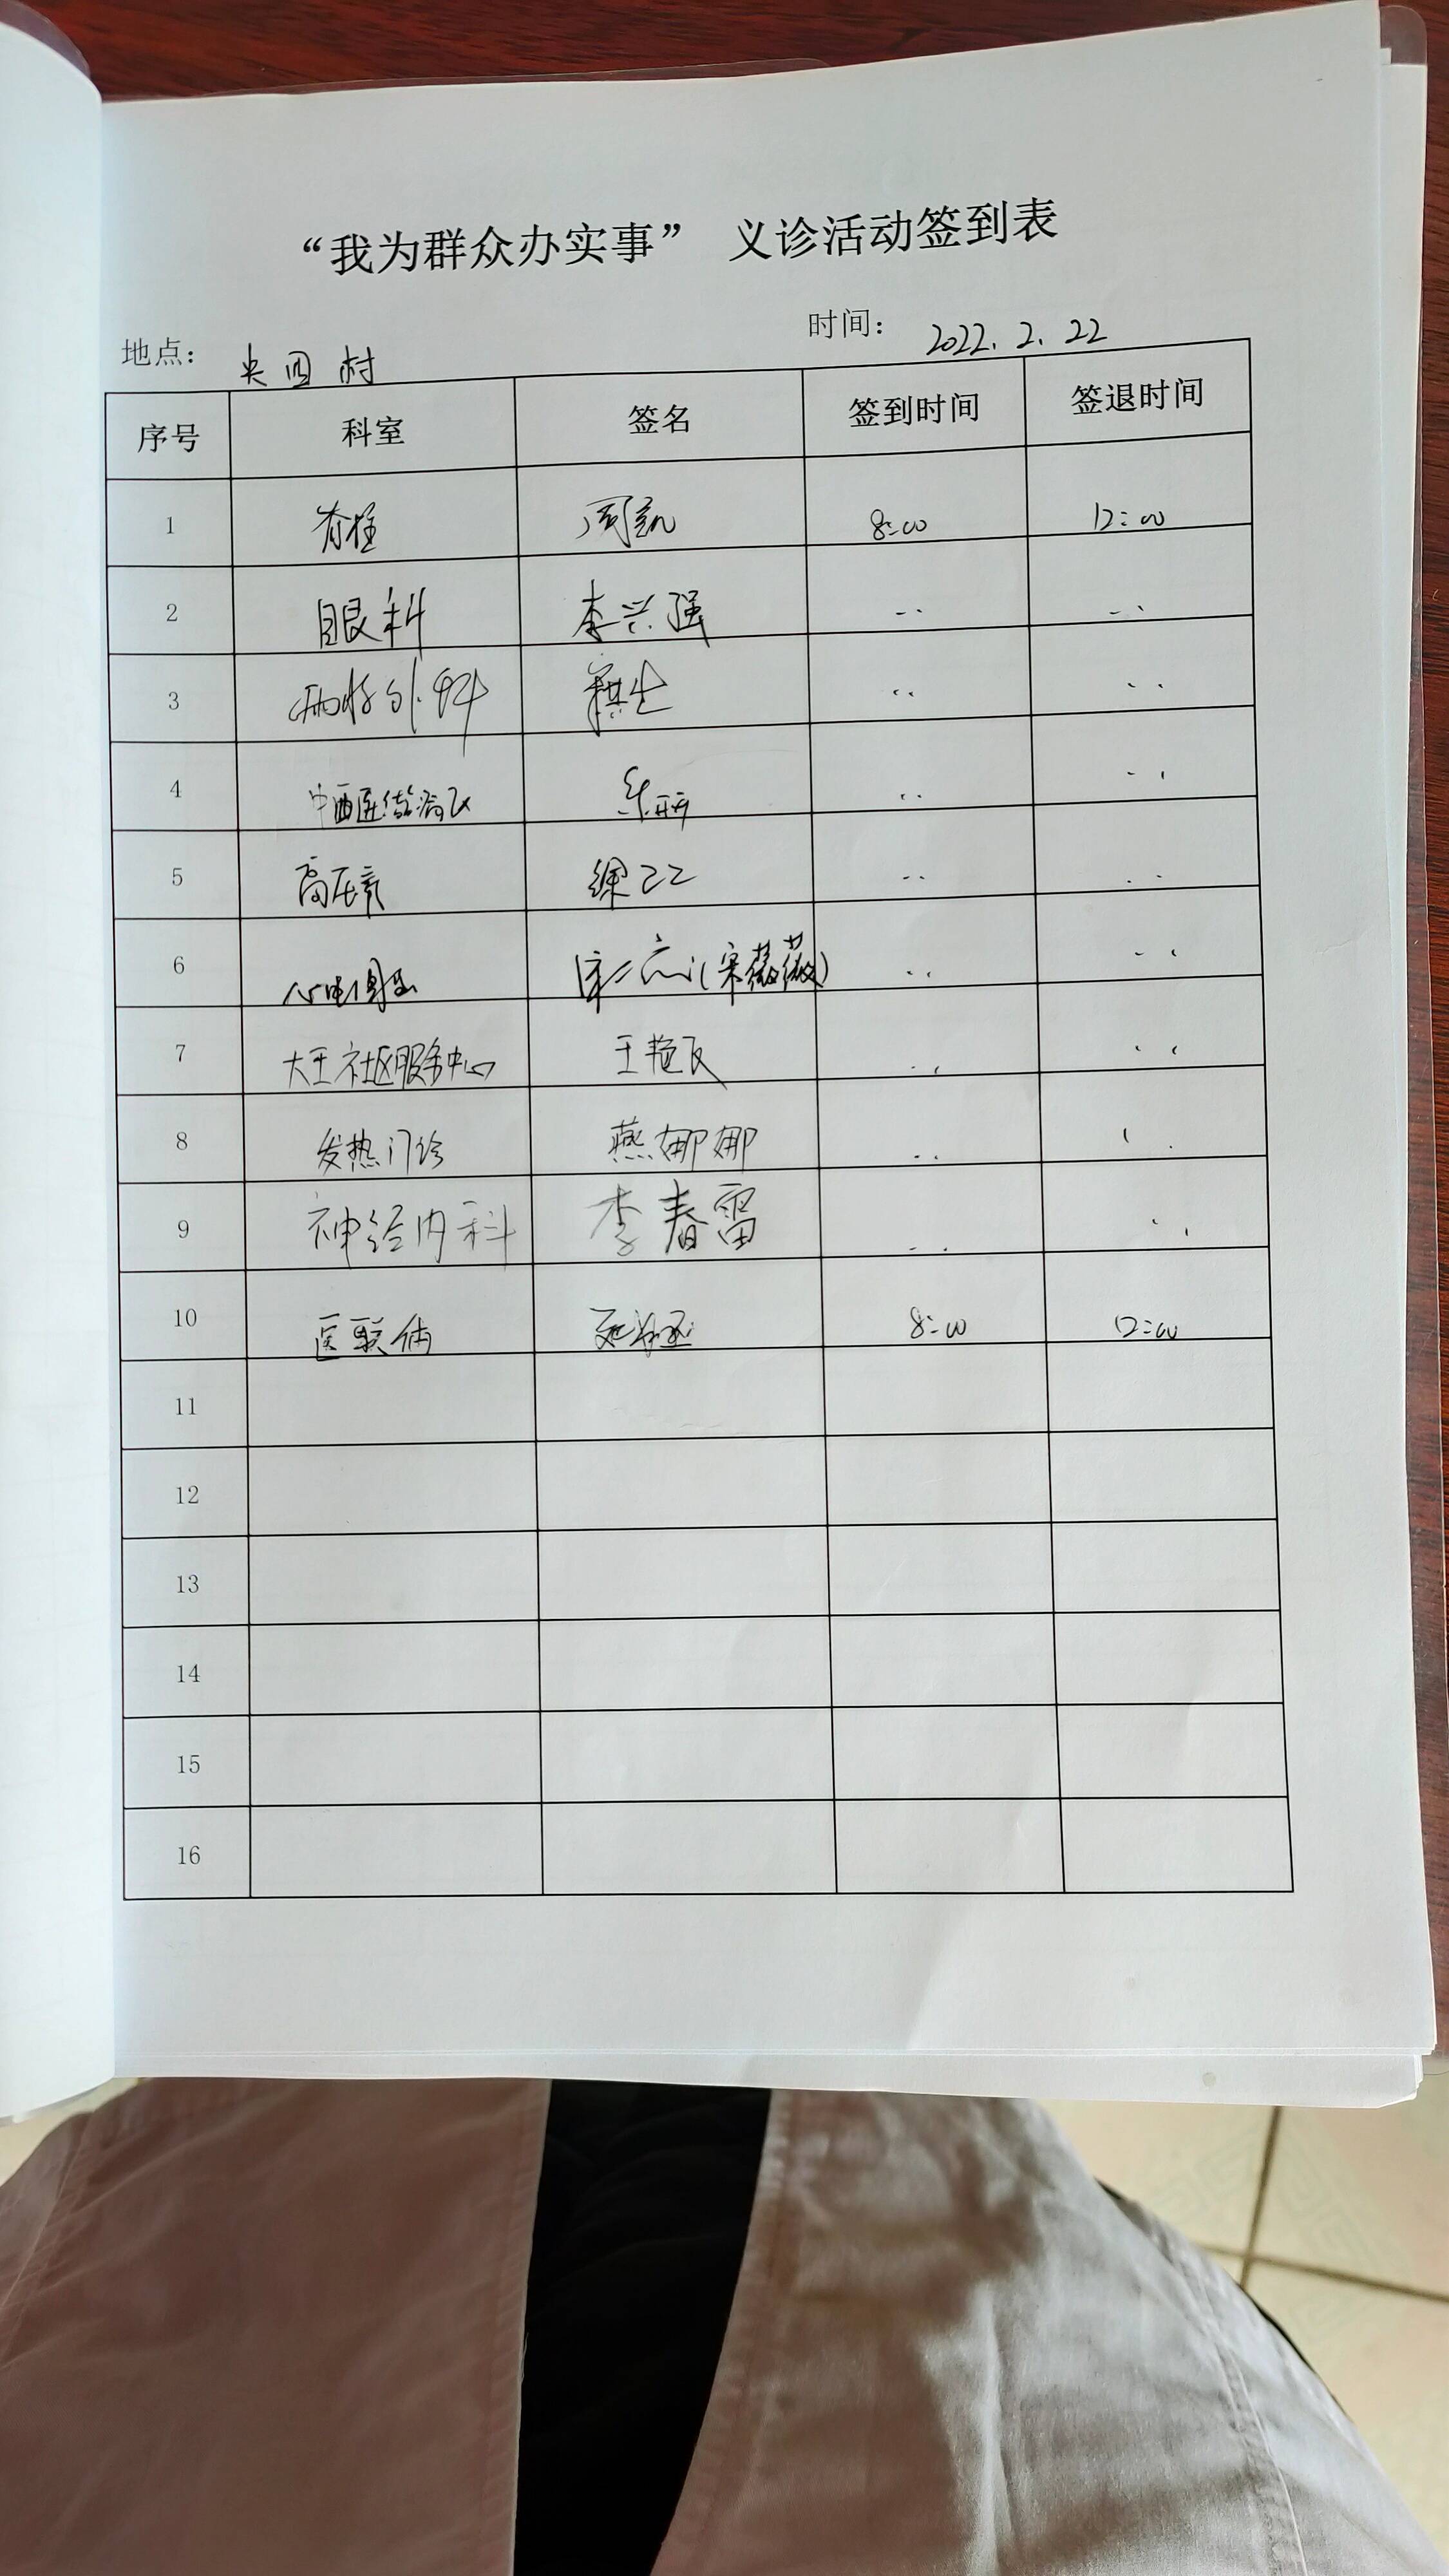 “我为群众办实事” 义诊活动签到表
地点： 央四村 时间： 2022.2.22
序号 科室 签名 签到时间 签退时间
1 脊柱 周凯 8:00 12:00
2 眼科 李兴强
3 外科
4 中西医结合
5 高压氧
6 心电图室 (宋薇薇)
7 大王社区服务中心 王艳飞
8 发热门诊 燕娜娜
9 神经内科 李春雷
10 医联体 8:00 12:00
11
12
13
14
15
16